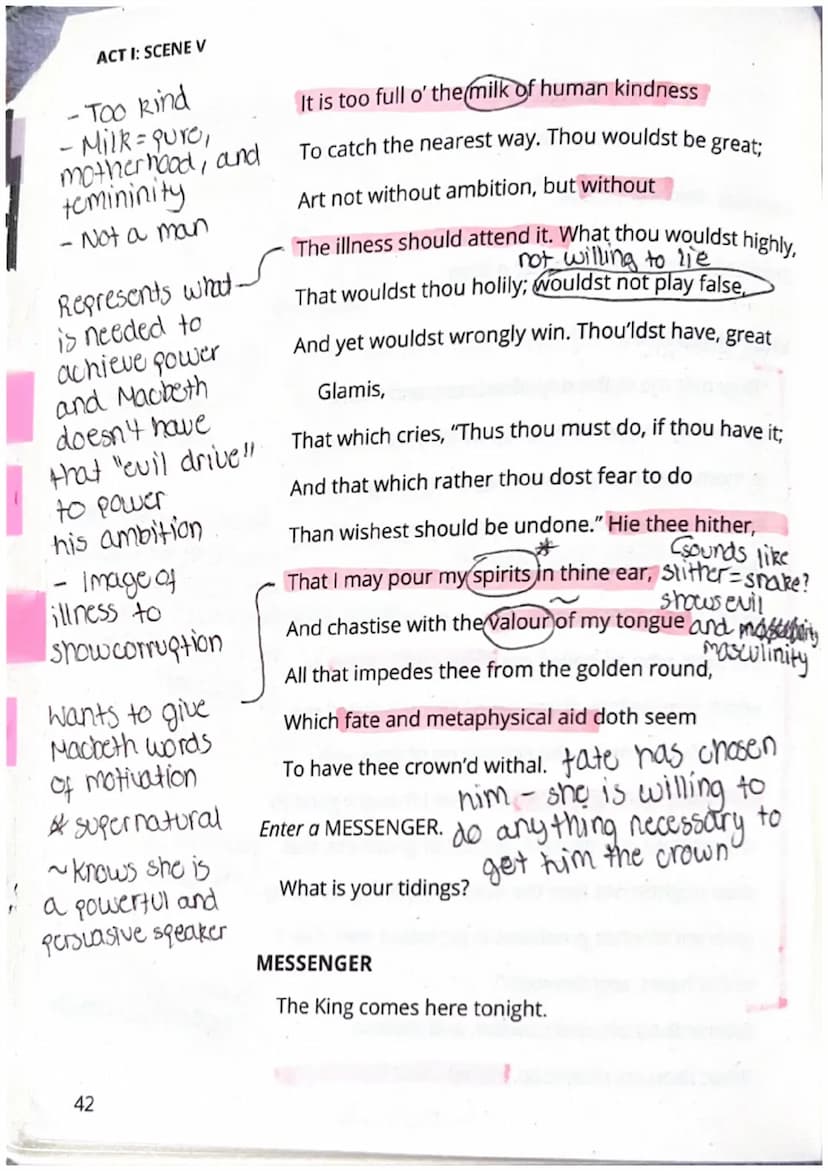 ACT I: SCENE V
- Too kind
- Milk = pure,
motherhood, and
femininity
- Not a man
Represents what
is needed to
achieve power
and Macbeth
doesn't have
that "evil drive"
to power
his ambition
- Image of
illness to
show corruption
Wants to give
Macbeth words
of motivation
* supernatural
~ knows she is
a powerful and
persuasive speaker
It is too full o' the milk of human kindness
To catch the nearest way. Thou wouldst be great;
Art not without ambition, but without
The illness should attend it. What thou wouldst highly,
not willing to lie
That wouldst thou holily; wouldst not play false,
And yet wouldst wrongly win. Thou'ldst have, great
Glamis,
That which cries, "Thus thou must do, if thou have it;
And that which rather thou dost fear to do
Than wishest should be undone." Hie thee hither,
sounds like
That I may pour my spirits in thine ear, *
slither = snake?
shows evil
And chastise with the valour of my tongue ~
and
masculinity
All that impedes thee from the golden round,
Which fate and metaphysical aid doth seem
To have thee crown'd withal.
fate has chosen
him - she is willing to
Enter a MESSENGER.
do anything necessary to
get him the crown
What is your tidings?
MESSENGER
The King comes here tonight.
42